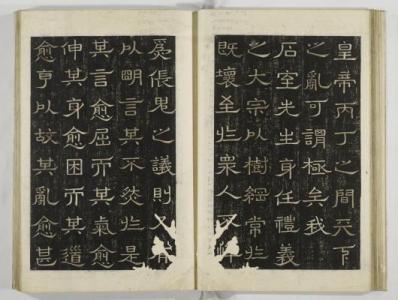 皇帝丙丁之間天下
之亂可謂極矣我
石室先生身任禮義
之大宗以樹綱常於
既壞至於衆人
爲倀鬼之議則
以明言其不然於是
其言愈屈而其氣愈
伸其身愈困而其道
愈亨以故其亂愈甚